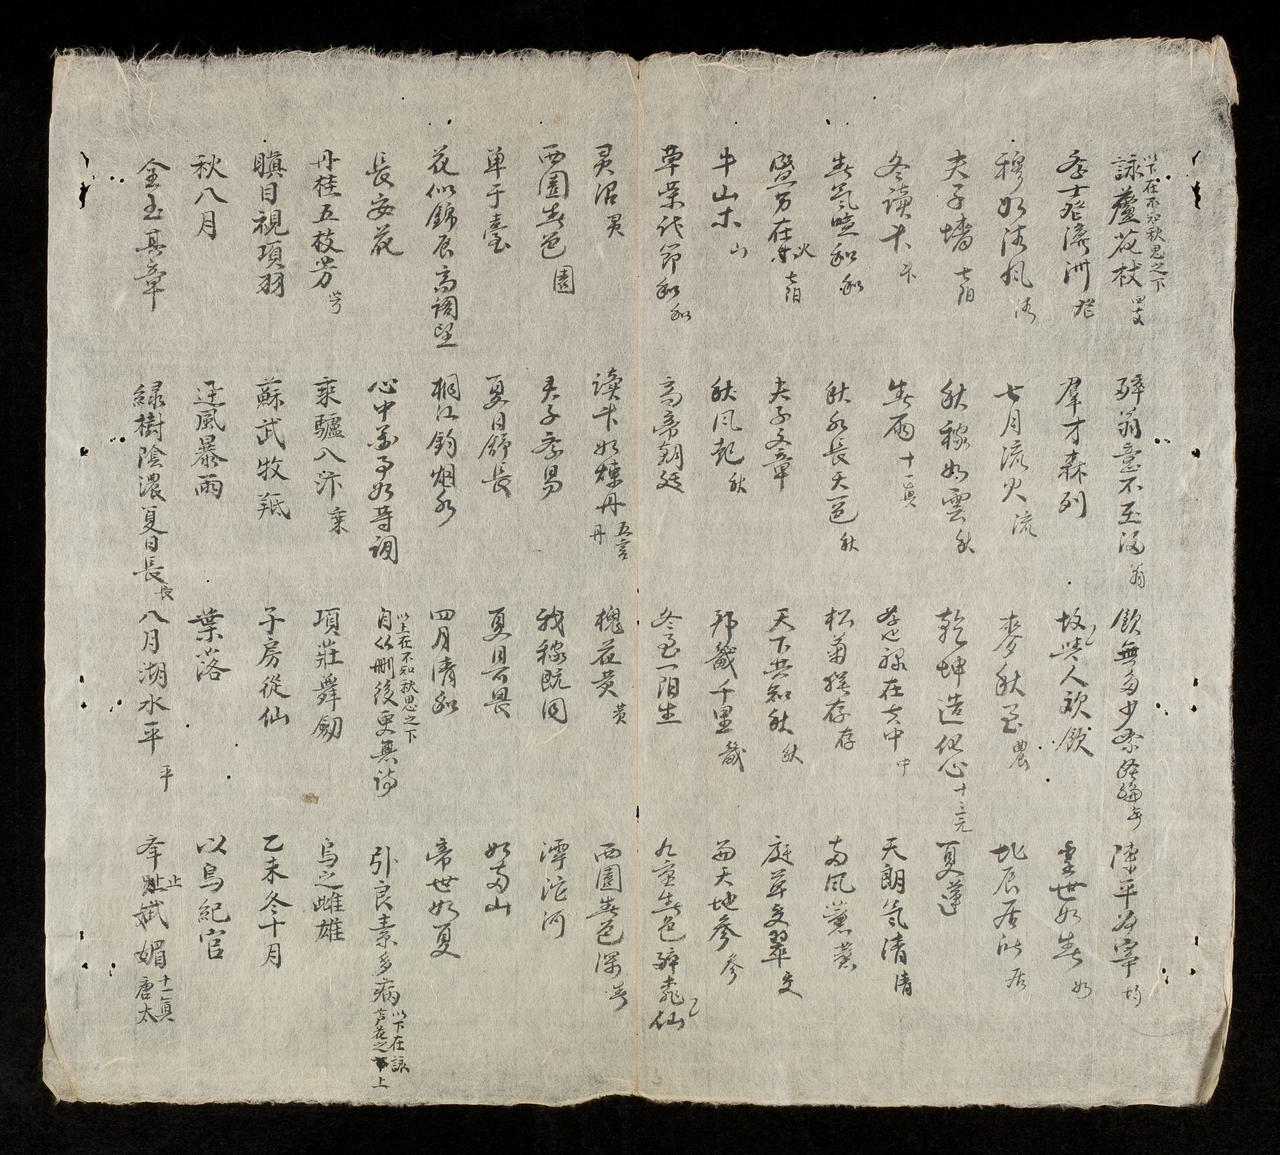 詠蘆花杖 四支 以下在不知秋思之下 醉翁意不至酒 翁 飲無多少 陳平為宰 均
學士登瀛洲 登 羣才森列 故 人欲飲 世如春 如
穆如清風 清 七月流火 流 麥秋至 農 北辰居所 居
夫子墻 七陽 秋稼如雲 秋 乾坤造化心 十三元 夏蓮
冬讀書 春雨 十一真 學也祿在其中 中 天朗氣清 清
春氣喧和 和 秋水長天色 秋 松菊猶存 存 南風薰 薰
在 七陽 夫子文章 天下共知秋 秋 庭草交翠 交
牛山木 山 秋風起 秋 邦畿千里 畿 與天地參 參
草榮識節和 和 高帝朝廷 冬至一陽生 九重春色醉桃仙
灵沼 灵 讀書如煉丹 五言 丹 槐花黃 黃 西園春色深 春
西園春色 園 君子居易 我稼既同 滹沱河
単于臺 夏日舒長 夏日可畏 如南山
花似錦 高調望 桐江釣烟水 四月清和 帝世如夏
長安花 心中萬事如等閑 自從刪後更無詩 以上在不知秋思之下 引良素多病 以下在詠芦花之上
丹桂五枝芳 芳 乘驢入汴 乘 項莊舞劒 烏之雌雄
瞋目視項羽 蘇武牧羝 子房從仙 乙未冬十月
秋八月 迅風暴雨 葉落 以烏紀官
金玉其章 緑樹陰濃夏日長 長 八月湖水平 平 斌媚 止 十一真 唐太